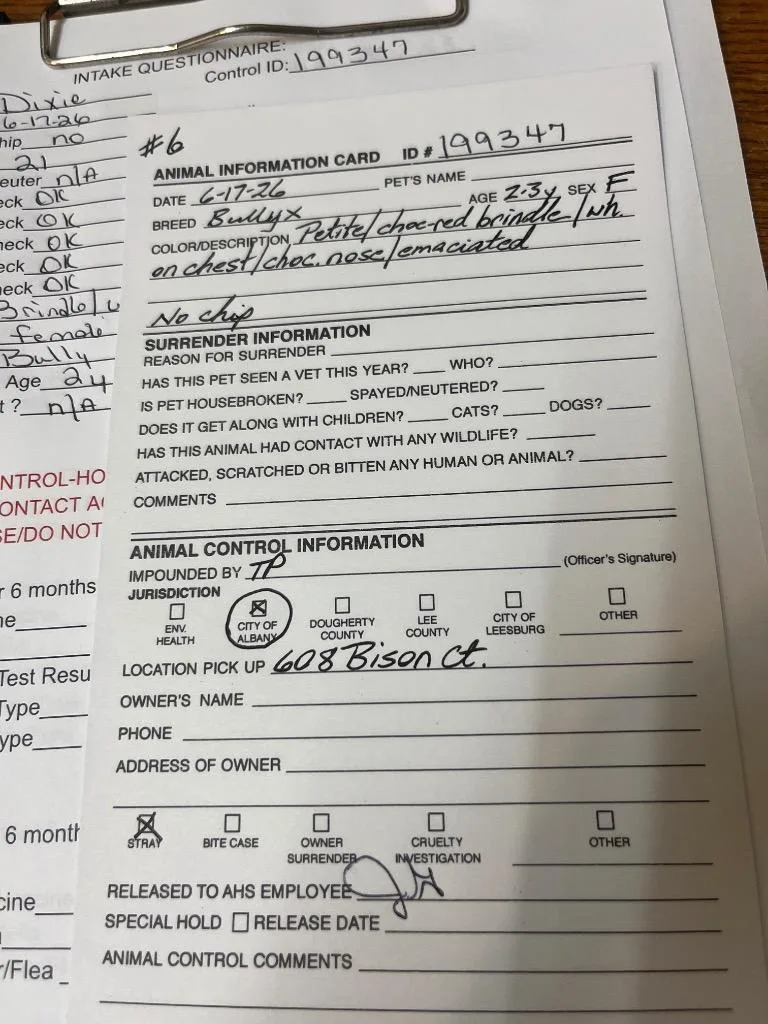 INTAKE QUESTIONNAIRE:
Control ID: 199347
Dixie
6-17-26
hip no
21
euter n/A
eck OK
eck OK
heck OK
eck OK
eck OK
Brindle/
female
Bully
Age 2y
t ? n/A
NTROL-HO
ONTACT A
SE/DO NOT
r 6 months
ne
Test Resu
Type
ype
6 month
cine
r/Flea
#6
ANIMAL INFORMATION CARD ID # 199347
DATE 6-17-26 PET'S NAME
BREED Bullyx AGE 2-3y SEX F
COLOR/DESCRIPTION Petite/choc-red brindle/wh.
on chest/choc. nose/emaciated
No chip
SURRENDER INFORMATION
REASON FOR SURRENDER
HAS THIS PET SEEN A VET THIS YEAR? WHO?
IS PET HOUSEBROKEN? SPAYED/NEUTERED?
DOES IT GET ALONG WITH CHILDREN? CATS? DOGS?
HAS THIS ANIMAL HAD CONTACT WITH ANY WILDLIFE?
ATTACKED, SCRATCHED OR BITTEN ANY HUMAN OR ANIMAL?
COMMENTS
ANIMAL CONTROL INFORMATION
IMPOUNDED BY TP (Officer's Signature)
JURISDICTION
ENV. HEALTH CITY OF ALBANY DOUGHERTY COUNTY LEE COUNTY CITY OF LEESBURG OTHER
LOCATION PICK UP 608 Bison Ct.
OWNER'S NAME
PHONE
ADDRESS OF OWNER
STRAY BITE CASE OWNER SURRENDER CRUELTY INVESTIGATION OTHER
RELEASED TO AHS EMPLOYEE
SPECIAL HOLD RELEASE DATE
ANIMAL CONTROL COMMENTS